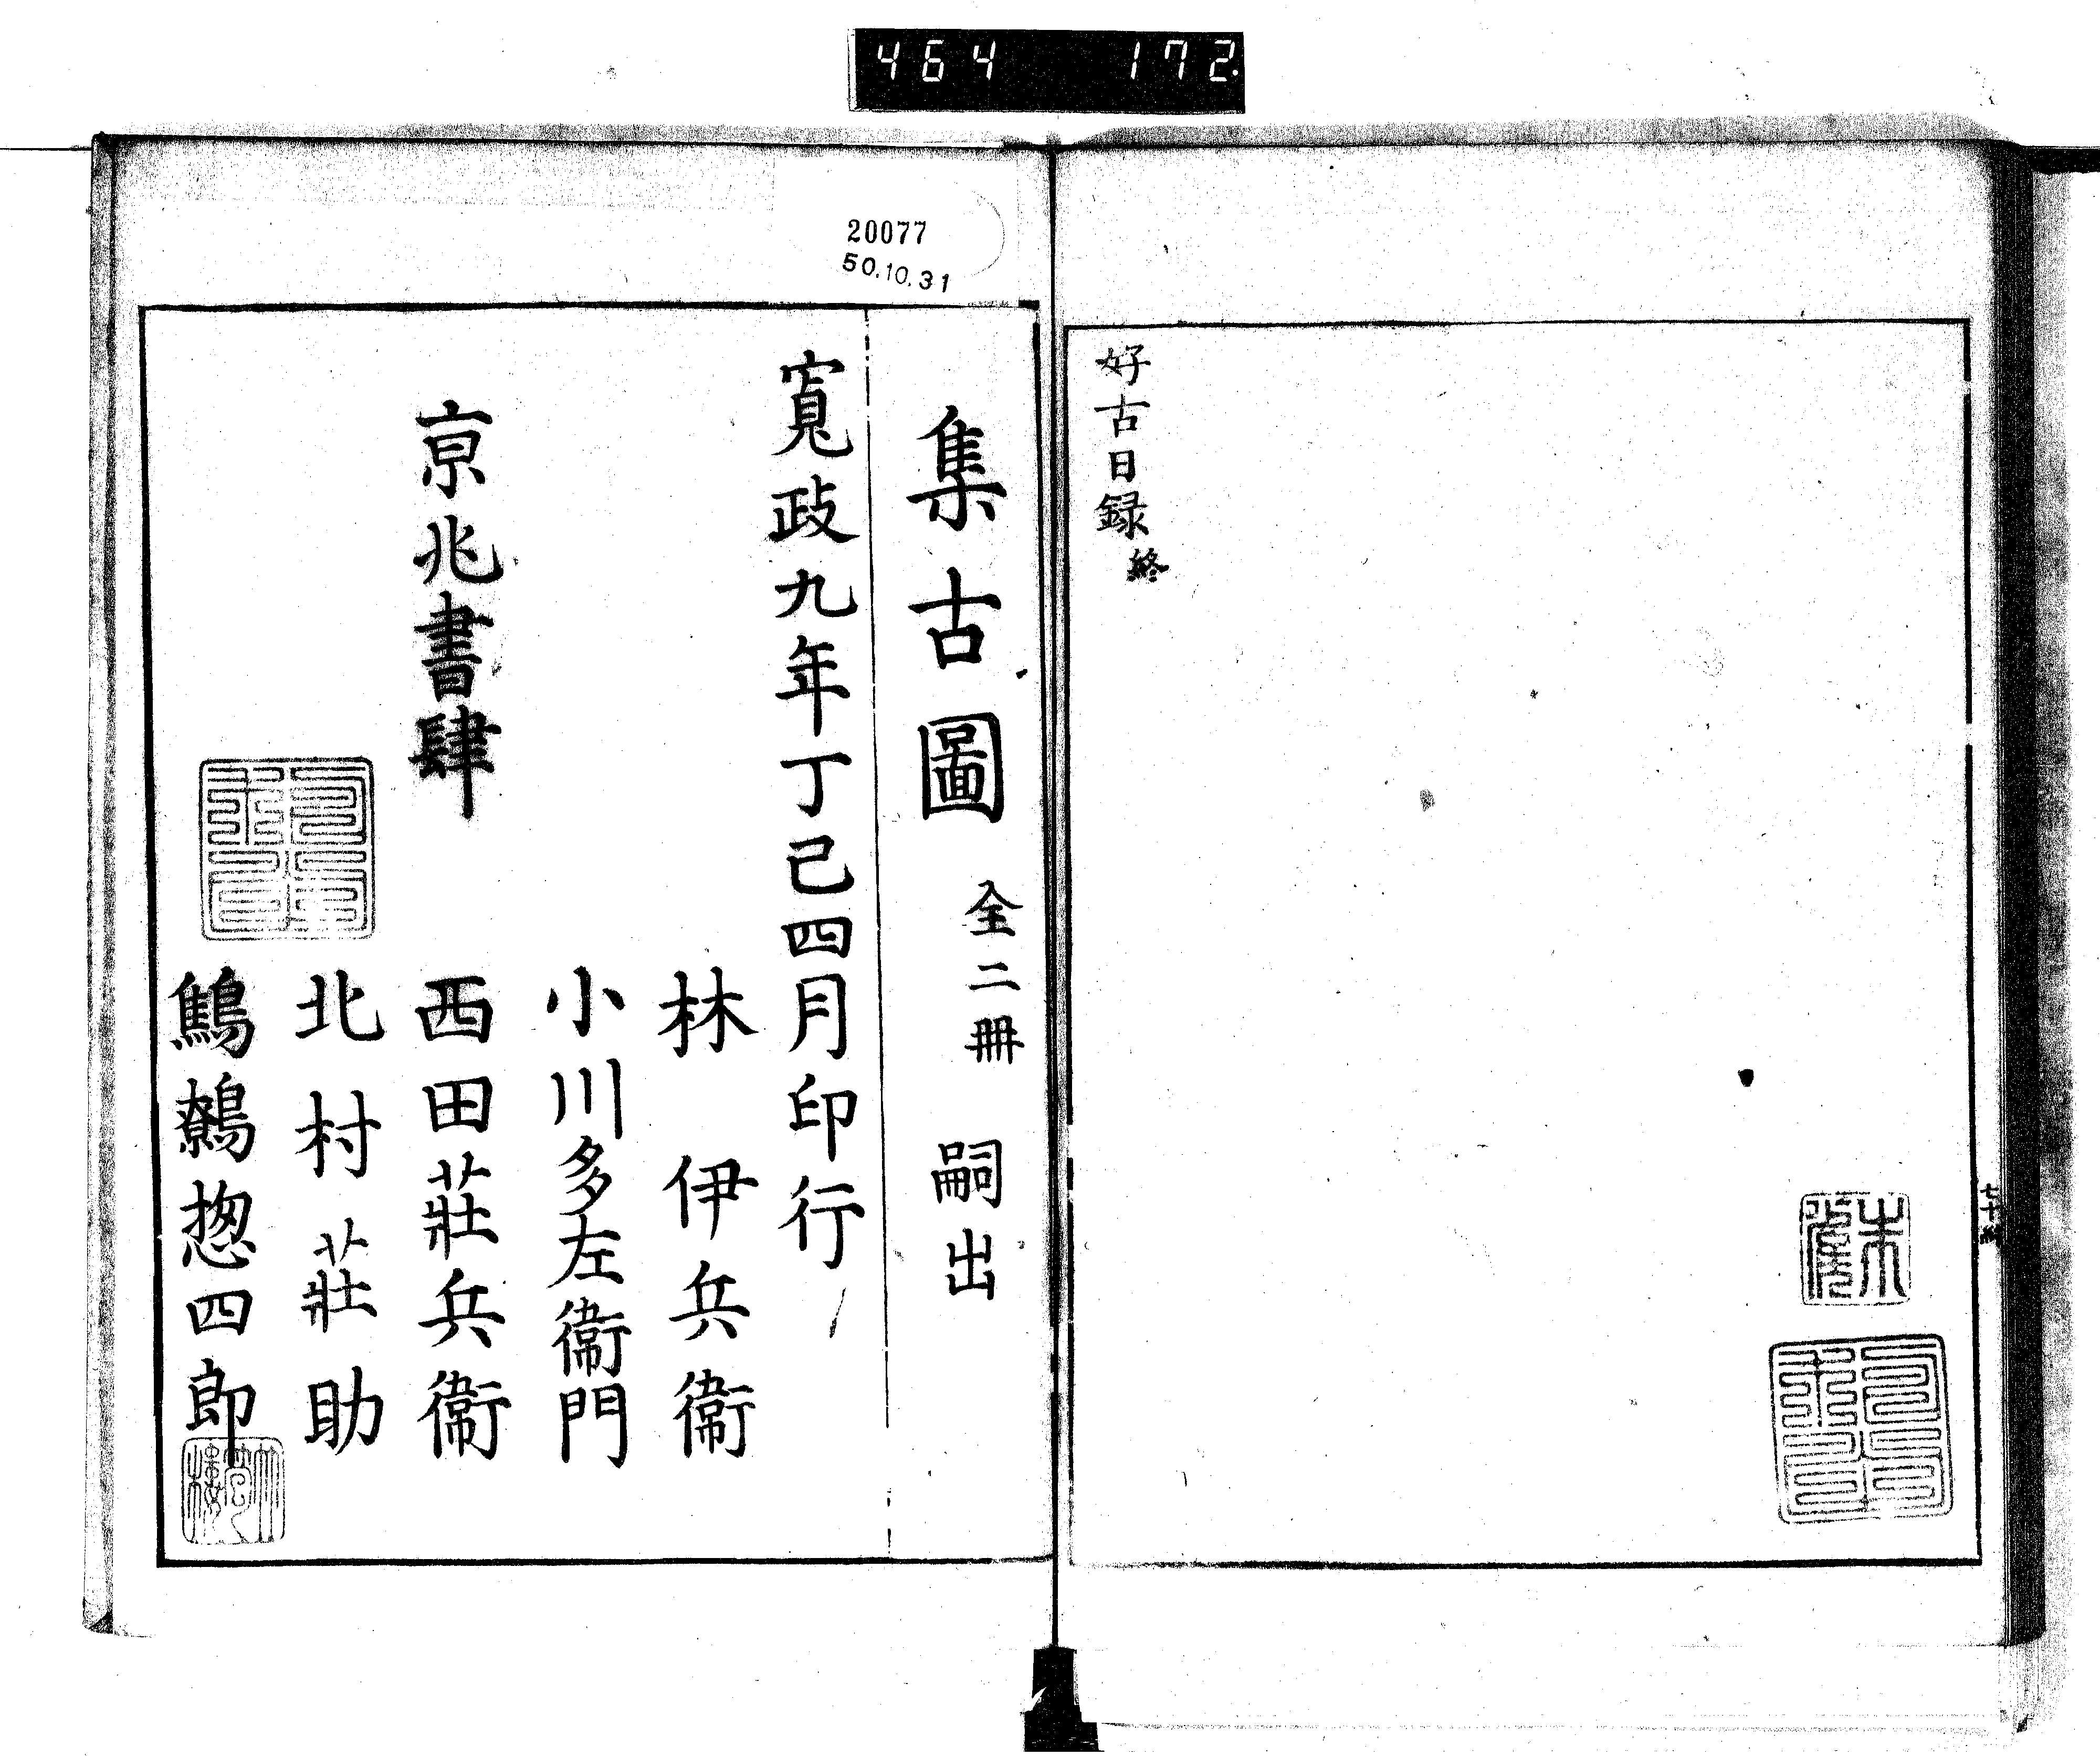 464 172.
20077
50.10.31
好古日録 終
七十終
集古圖 全二冊 嗣出
寬政九年丁已四月印行
京兆書肆
林 伊兵衛
小川多左衞門
西田莊兵衛
北村莊助
鷦鷯惣四郎